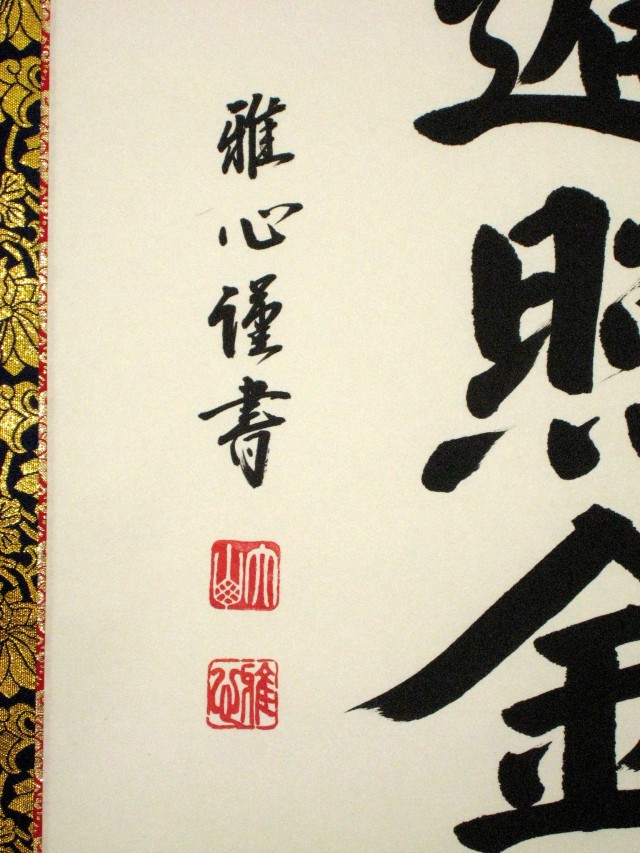 遍照金
雅心謹書
雅心